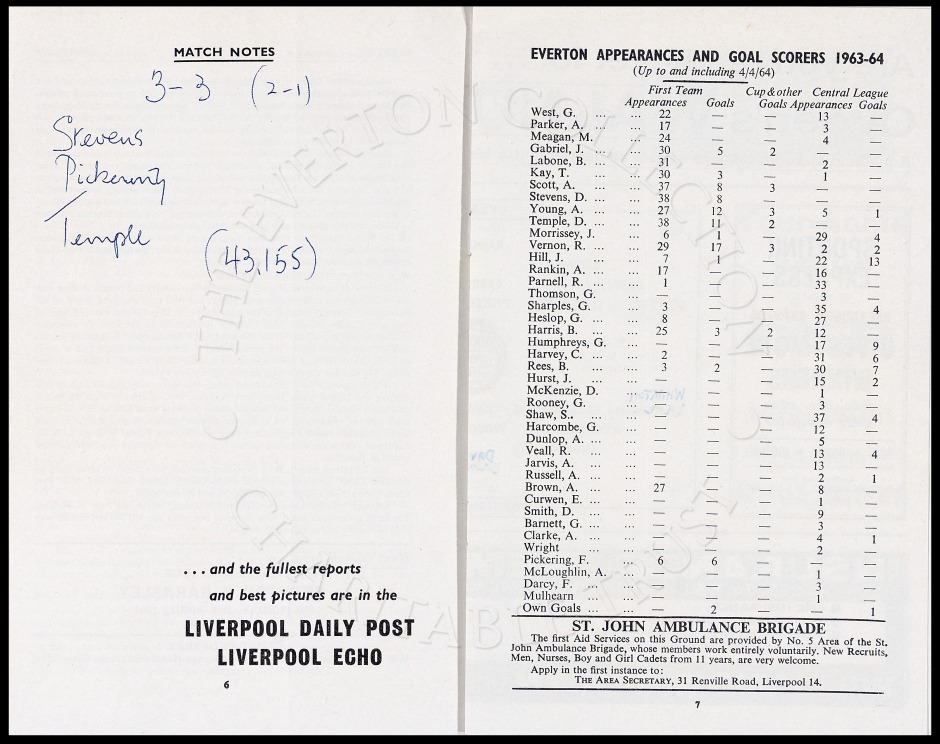 MATCH NOTES
3-3 (2-1)
Stevens
Pickering
Temple
(43,155)
... and the fullest reports
and best pictures are in the
LIVERPOOL DAILY POST
LIVERPOOL ECHO
6
EVERTON APPEARANCES AND GOAL SCORERS 1963-64
(Up to and including 4/4/64)
First Team Cup & other Central League
Appearances Goals Goals Appearances Goals
West, G. ... ... 22 — — 13 —
Parker, A. ... ... 17 — — 3 —
Meagan, M. ... 24 — — 4 —
Gabriel, J. ... ... 30 5 2 — —
Labone, B. ... ... 31 — — 2 —
Kay, T. ... ... 30 3 — 1 —
Scott, A. ... ... 37 8 3 — —
Stevens, D. ... ... 38 8 — — —
Young, A. ... ... 27 12 3 5 1
Temple, D. ... ... 38 11 2 — —
Morrissey, J. ... 6 1 — 29 4
Vernon, R. ... ... 29 17 3 2 2
Hill, J. ... ... 7 1 — 22 13
Rankin, A. ... ... 17 — — 16 —
Parnell, R. ... ... 1 — — 33 —
Thomson, G. ... — — — 3 —
Sharples, G. ... ... 3 — — 35 4
Heslop, G. ... ... 8 — — 27 —
Harris, B. ... ... 25 3 2 12 —
Humphreys, G. ... — — — 17 9
Harvey, C. ... ... 2 — — 31 6
Rees, B. ... ... 3 2 — 30 7
Hurst, J. ... ... — — — 15 2
McKenzie, D. ... — — — 1 —
Rooney, G. ... ... — — — 3 —
Shaw, S.. ... ... — — — 37 4
Harcombe, G. ... — — — 12 —
Dunlop, A. ... ... — — — 5 —
Veall, R. ... ... — — — 13 4
Jarvis, A. ... ... — — — 13 —
Russell, A. ... ... — — — 2 1
Brown, A. ... ... 27 — — 8 —
Curwen, E. ... ... — — — 1 —
Smith, D. ... ... — — — 9 —
Barnett, G. ... ... — — — 3 —
Clarke, A. ... ... — — — 4 1
Wright ... ... — — — 2 —
Pickering, F. ... 6 6 — — —
McLoughlin, A. ... — — — 1 —
Darcy, F. ... ... — — — 3 —
Mulhearn ... ... — — — 1 —
Own Goals ... ... — 2 — — 1
ST. JOHN AMBULANCE BRIGADE
The first Aid Services on this Ground are provided by No. 5 Area of the St.
John Ambulance Brigade, whose members work entirely voluntarily. New Recruits,
Men, Nurses, Boy and Girl Cadets from 11 years, are very welcome.
Apply in the first instance to:
THE AREA SECRETARY, 31 Renville Road, Liverpool 14.
7
THE EVERTON COLLECTION
CHARITABLE TRUST